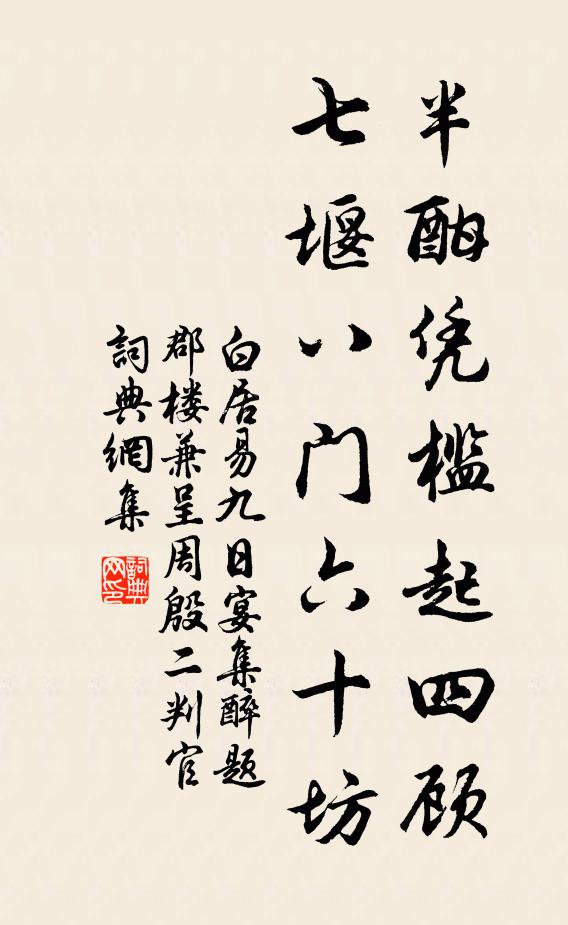 半酣凭槛起四顾
七堰八门六十坊
白居易九日宴集醉题
郡楼兼呈周殷二判官
詞典網集
詞典网印